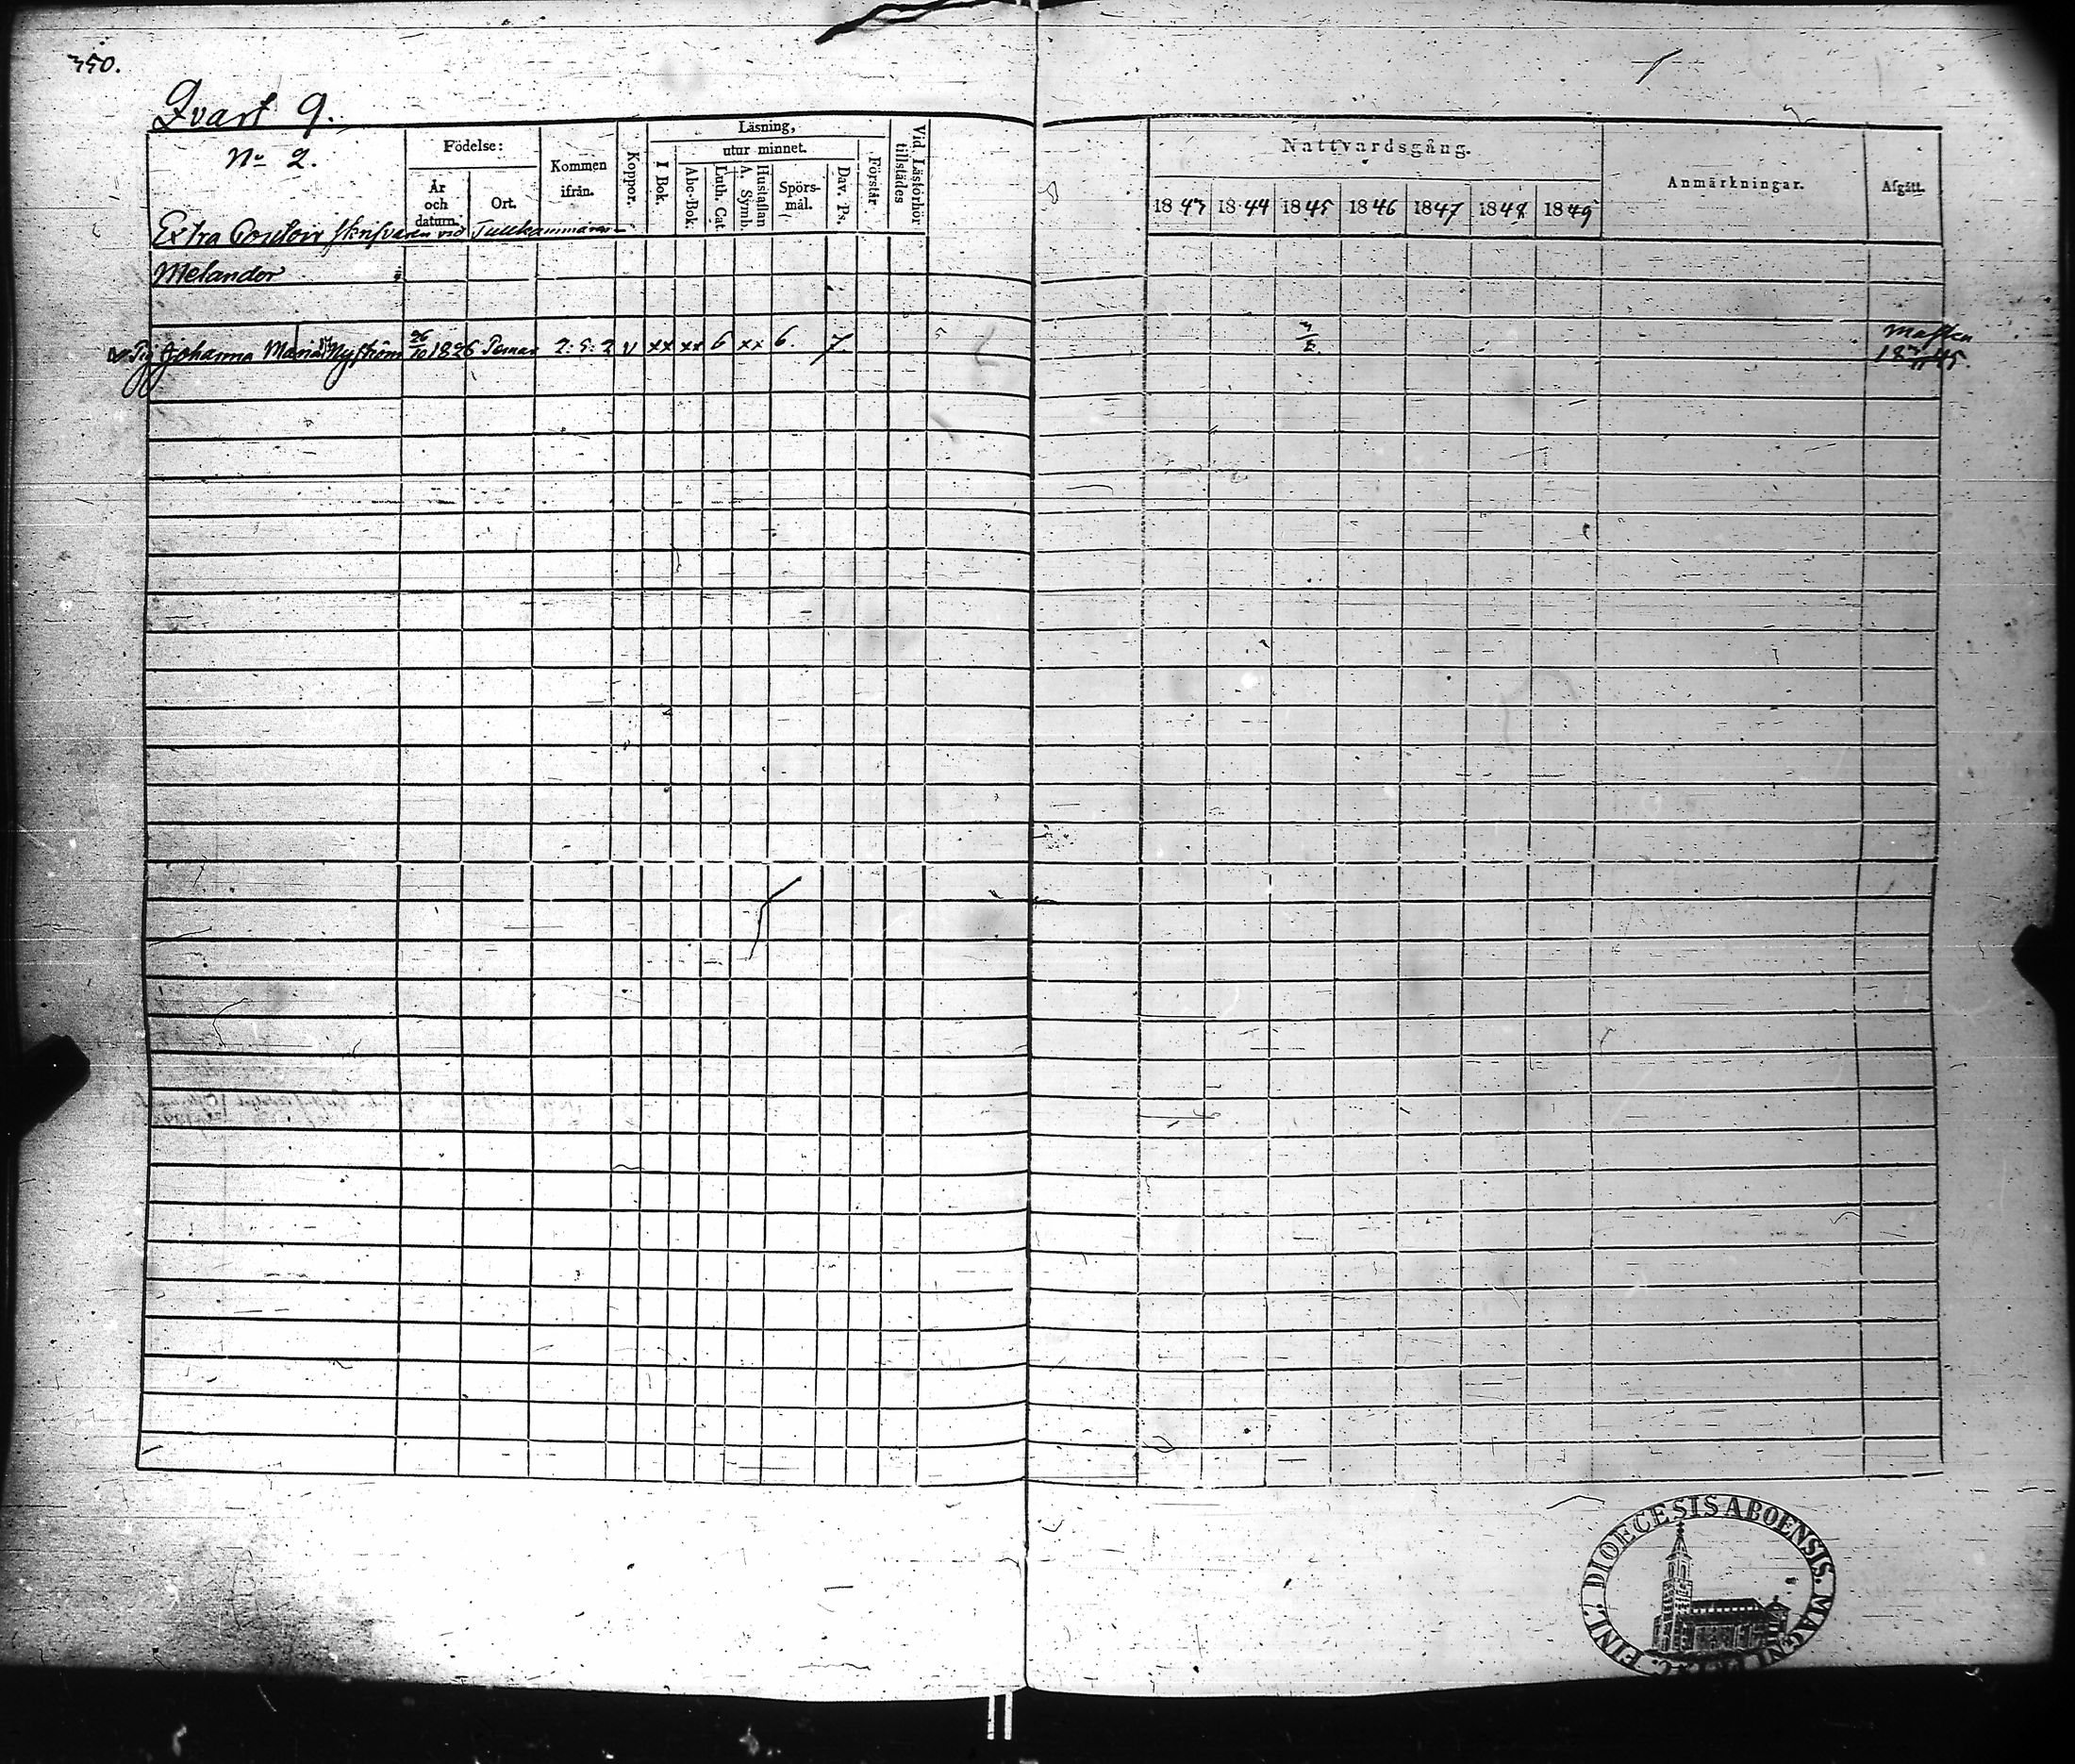 350.
Qvart 9.
No 2.
Födelse:
År och datum.
Ort.
Kommen ifrån.
Koppor.
Läsning,
utur minnet.
I Bok.
Abc-Bok.
Luth. Cat.
Hustaflan A. Symb.
Spörs-mål.
Dav. Ps.
Förstår
Vid Läsförhör tillstädes
Nattvardsgång.
1843 1844 1845 1846 1847 1848 1849
Anmärkningar.
Afgått.
Extra Contoirskrifvaren vid Tullkammaren
Melander
Pig Johanna Maria Nyström 26/10 1826 Pemar 2. 5. 2 v xx xx 6 xx 6. 7
45.
DIOECESIS ABOENSIS. MAGNI PR:C. FINL.